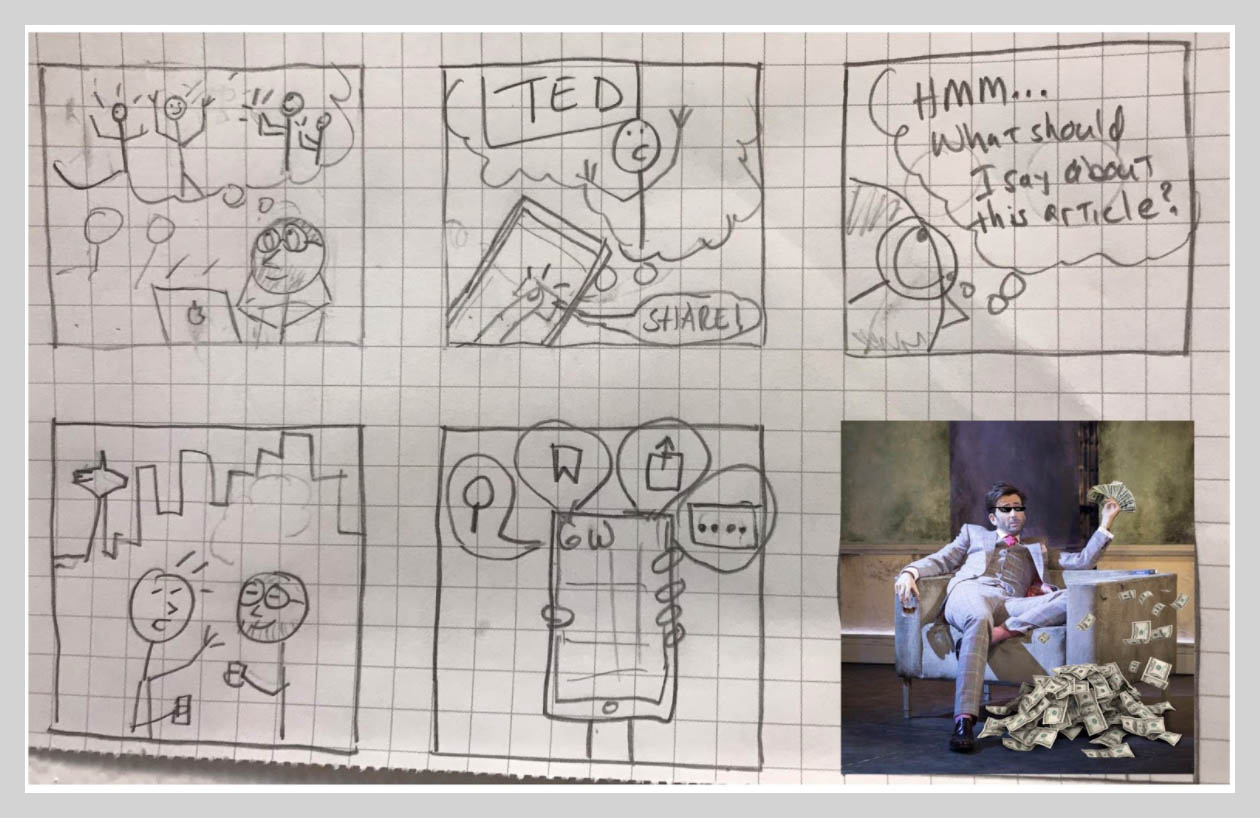 TED
SHARE!
HMM...
What should
I say about
this article?
GW